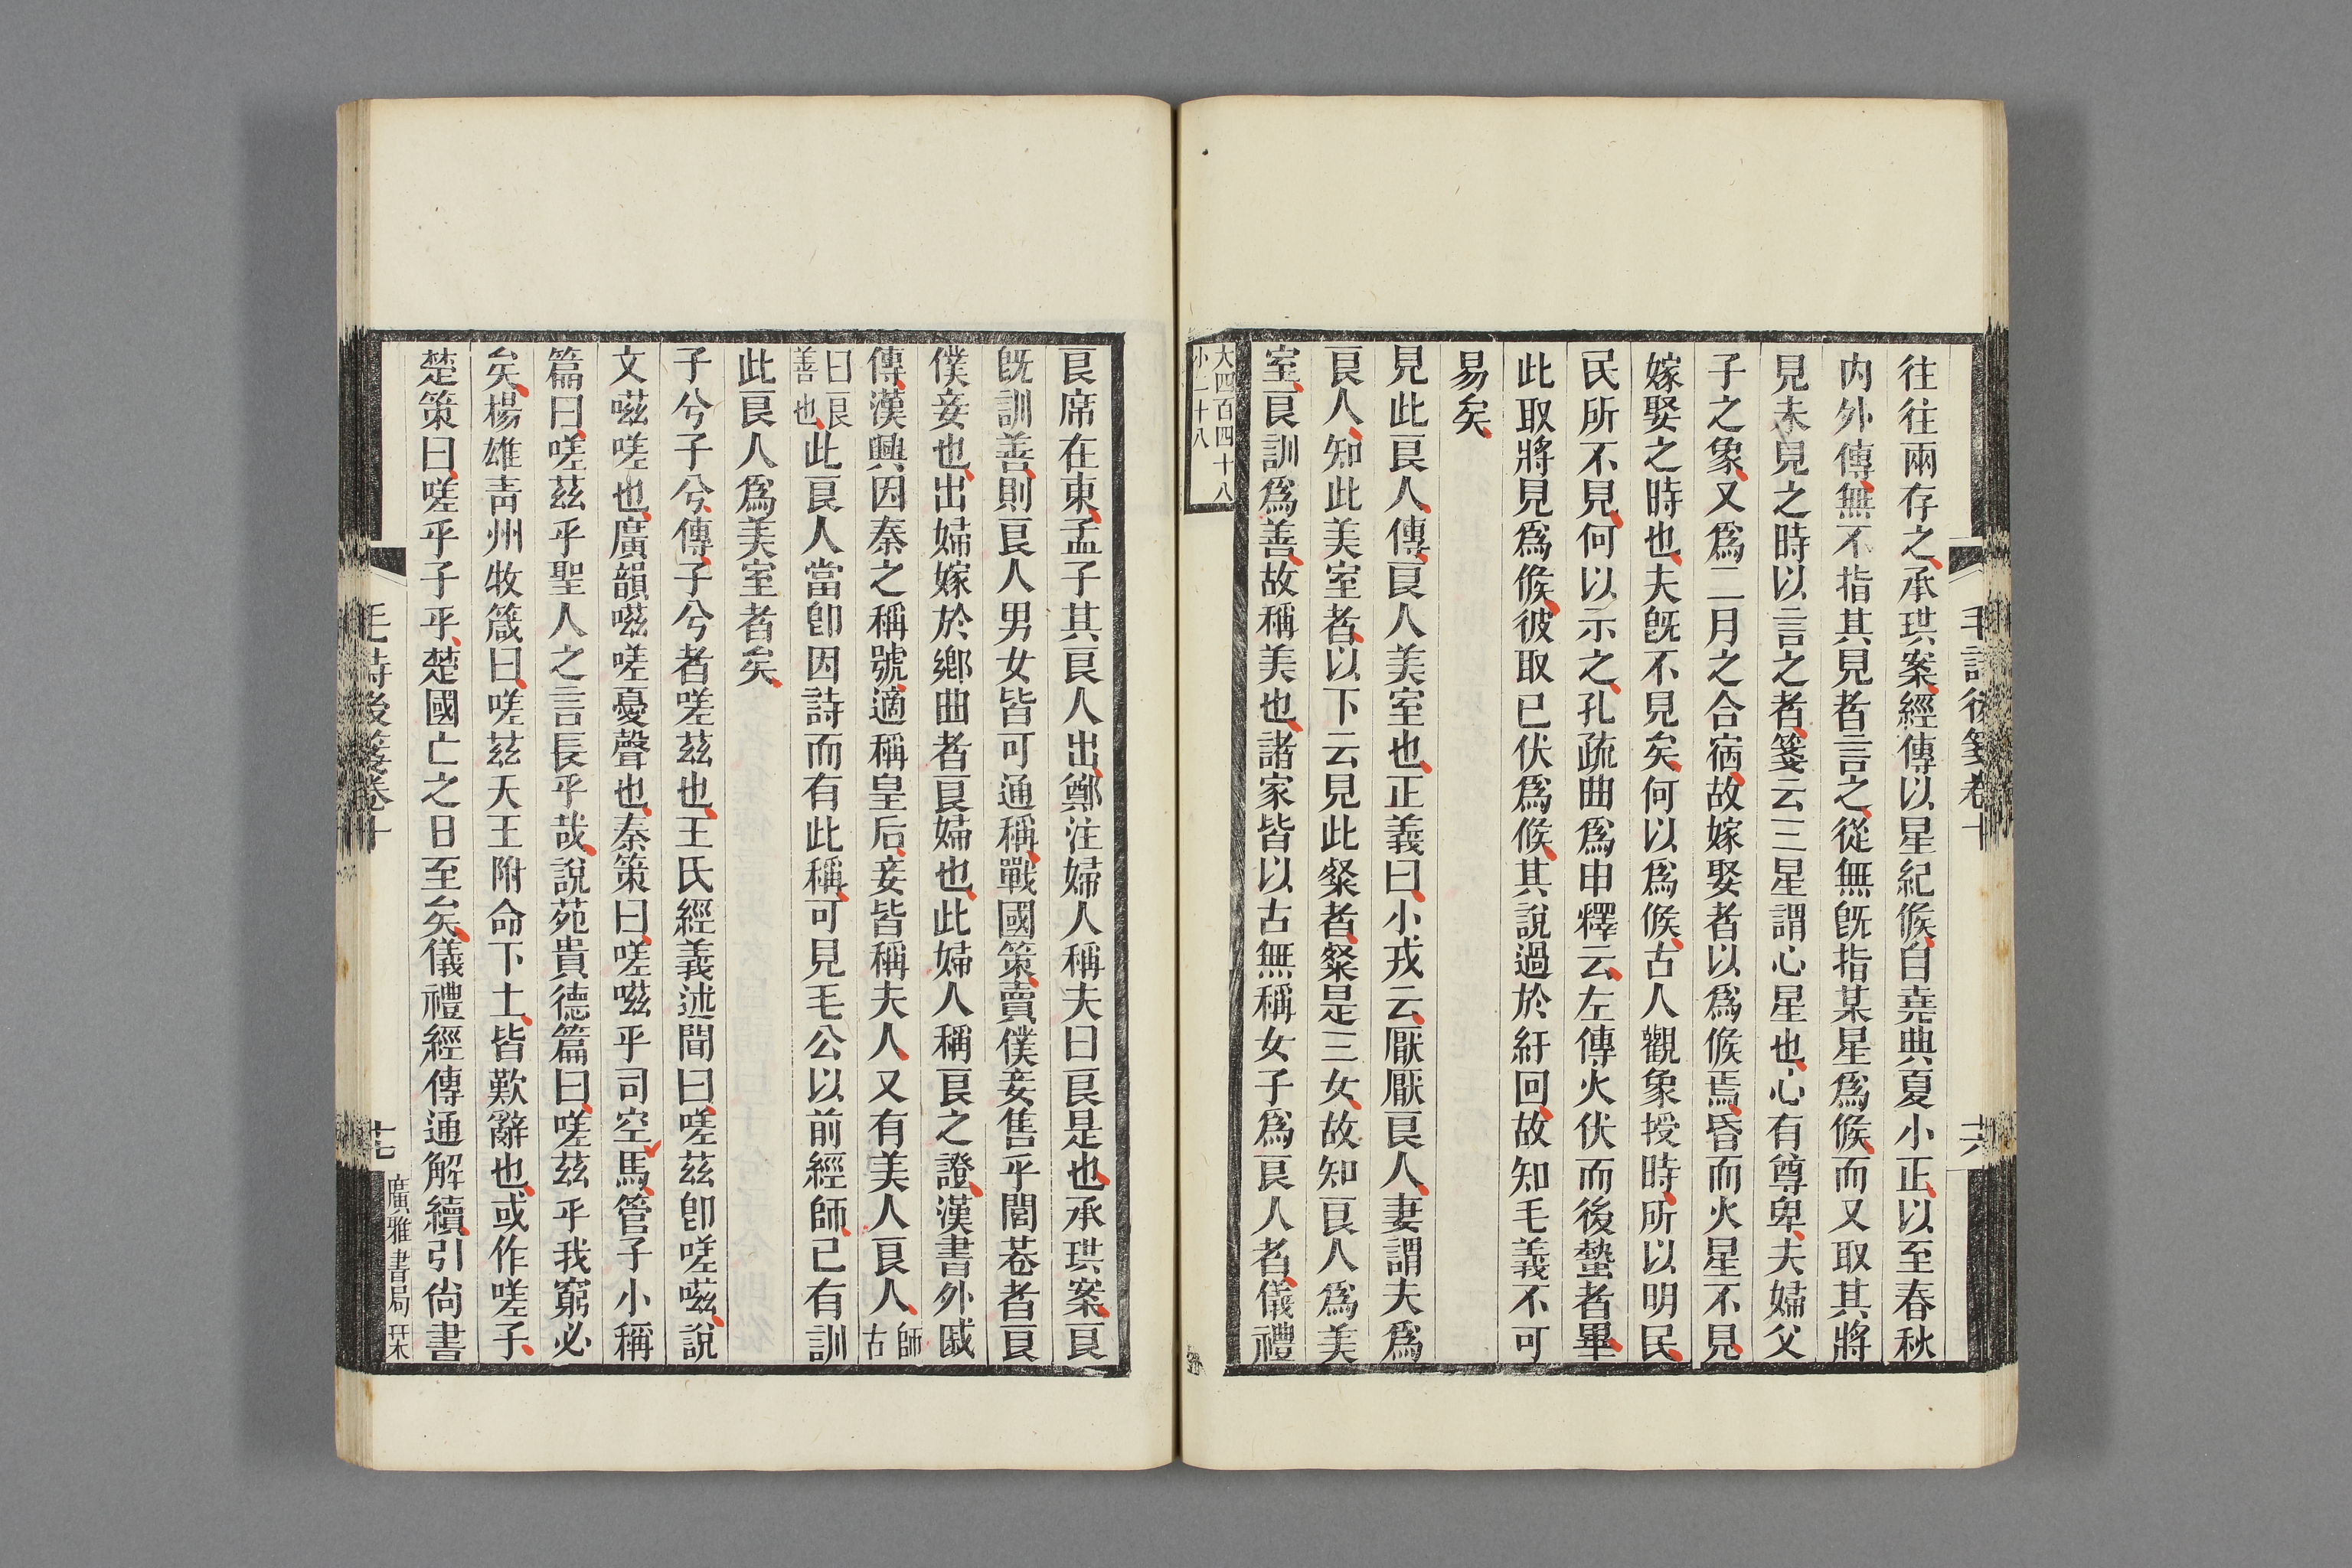 往往兩存之承珙案經傳以星紀候自堯典夏小正以至春秋
內外傳無不指其見者言之從無既指某星為候而又取其將
見未見之時以言之者箋云三星謂心星也心有尊卑夫婦父
子之象又為二月之合宿故嫁娶者以為候焉昏而火星不見
嫁娶之時也夫既不見矣何以為候古人觀象授時所以明民
民所不見何以示之孔疏曲為申釋云左傳火伏而後蟄者畢
此取將見為候彼取已伏為候其說過於紆回故知毛義不可
易矣
見此良人傳良人美室也正義曰小戎云厭厭良人妻謂夫為
良人知此美室者以下云見此粲者粲是三女故知良人為美
室良訓為善故稱美也諸家皆以古無稱女子為良人者儀禮
大四百四十八
小二十八
毛詩後箋卷十
十六
良席在東孟子其良人出鄭注婦人稱夫曰良是也承珙案良
既訓善則良人男女皆可通稱戰國策賣僕妾售乎閭巷者良
僕妾也出婦嫁於鄉曲者良婦也此婦人稱良之證漢書外戚
傳漢興因秦之稱號適稱皇后妾皆稱夫人又有美人良人師古
曰良善也此良人當卽因詩而有此稱可見毛公以前經師已有訓
此良人為美室者矣
子兮子兮傳子兮者嗟茲也王氏經義述聞曰嗟茲卽嗟嗞說
文嗞嗟也廣韻嗞嗟憂聲也秦策曰嗟嗞乎司空馬管子小稱
篇曰嗟茲乎聖人之言長乎哉說苑貴德篇曰嗟茲乎我窮必
矣楊雄青州牧箴曰嗟茲天王附命下土皆歎辭也或作嗟子
楚策曰嗟乎子乎楚國亡之日至矣儀禮經傳通解續引尙書
毛詩後箋卷十
十七
廣雅書局栞